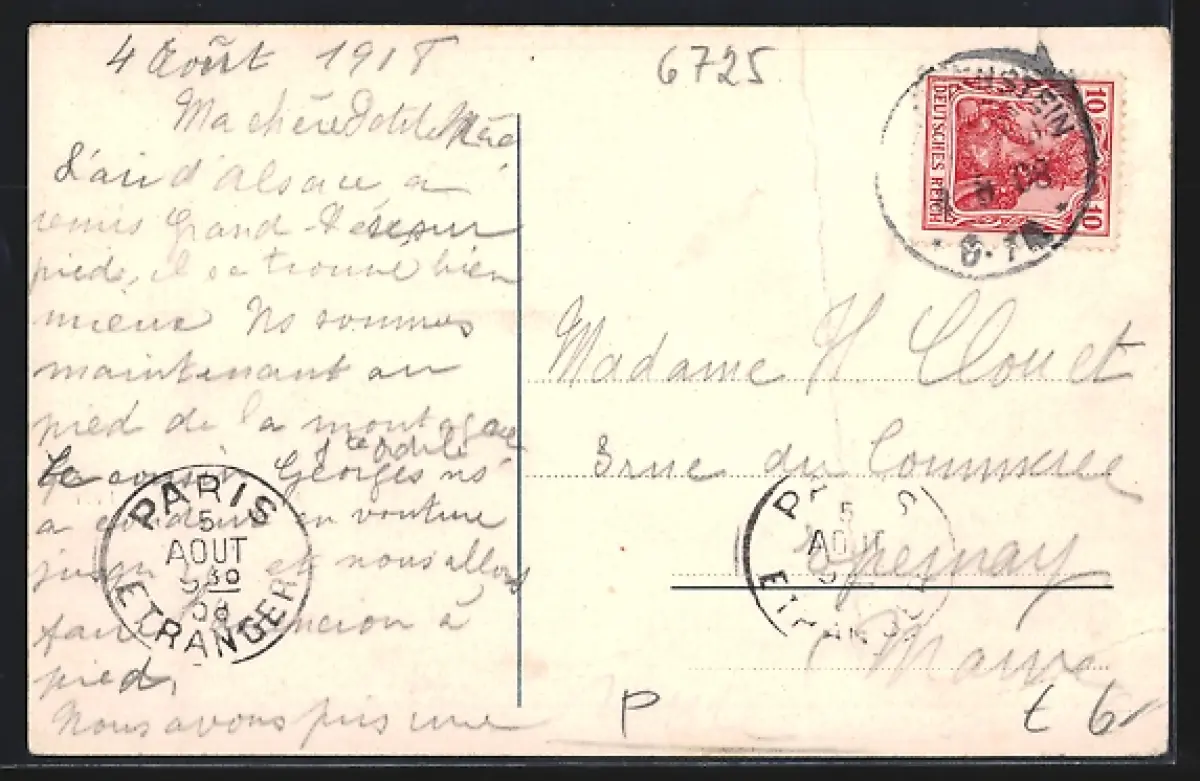 4 Août 1908
6725
Ma chère Petite Mère
L'air d'alsace a
remis Grand-Père sur
pieds, il se trouve bien
mieux Ns sommes
maintenant au
pied de la montagne
Ste Odile
Le cousin Georges ns
a conduit en voiture
jusque et nous allons
faire à
pied,
Nous avons pris une
PARIS
5
AOUT
9 30
08
ETRANGER
DEUTSCHES REICH
10
10
STEIN
Madame H. Clouet
3 rue du Commerce
Epernay
Marne
5
AOUT
P
t 6